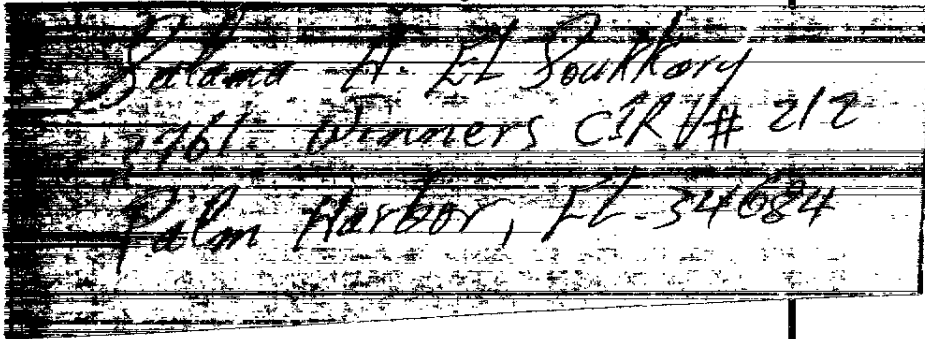 Salama A. EL Soukkary
2961. Winners CIR # 212
Palm Harbor, FL. 34684